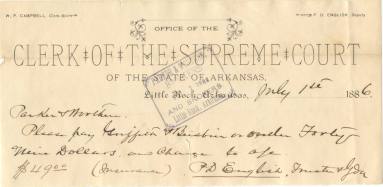 W. P. CAMPBELL
P. D. ENGLISH
OFFICE OF THE
CLERK OF THE SUPREME COURT
OF THE STATE OF ARKANSAS,
Little Rock, Arkansas, July 1st 1886
Parker & Worthen.
Please pay Griffith & or order Forty
Nine Dollars, and Charge to a/c
$49.00 (Insurance) P D English,